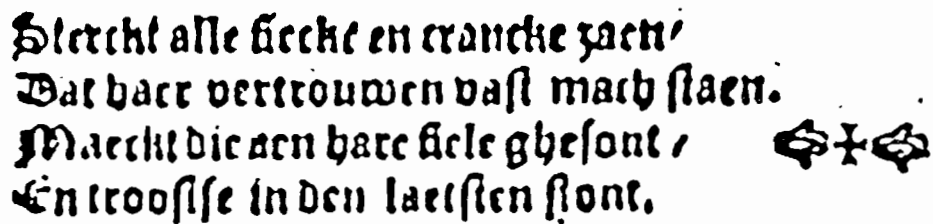 Sterckt alle siecke en crancke zaen/
Dat haer vertrouwen vast mach staen.
Maeckt die aen hare siele ghesont/
En troostse in den laetsten stont.